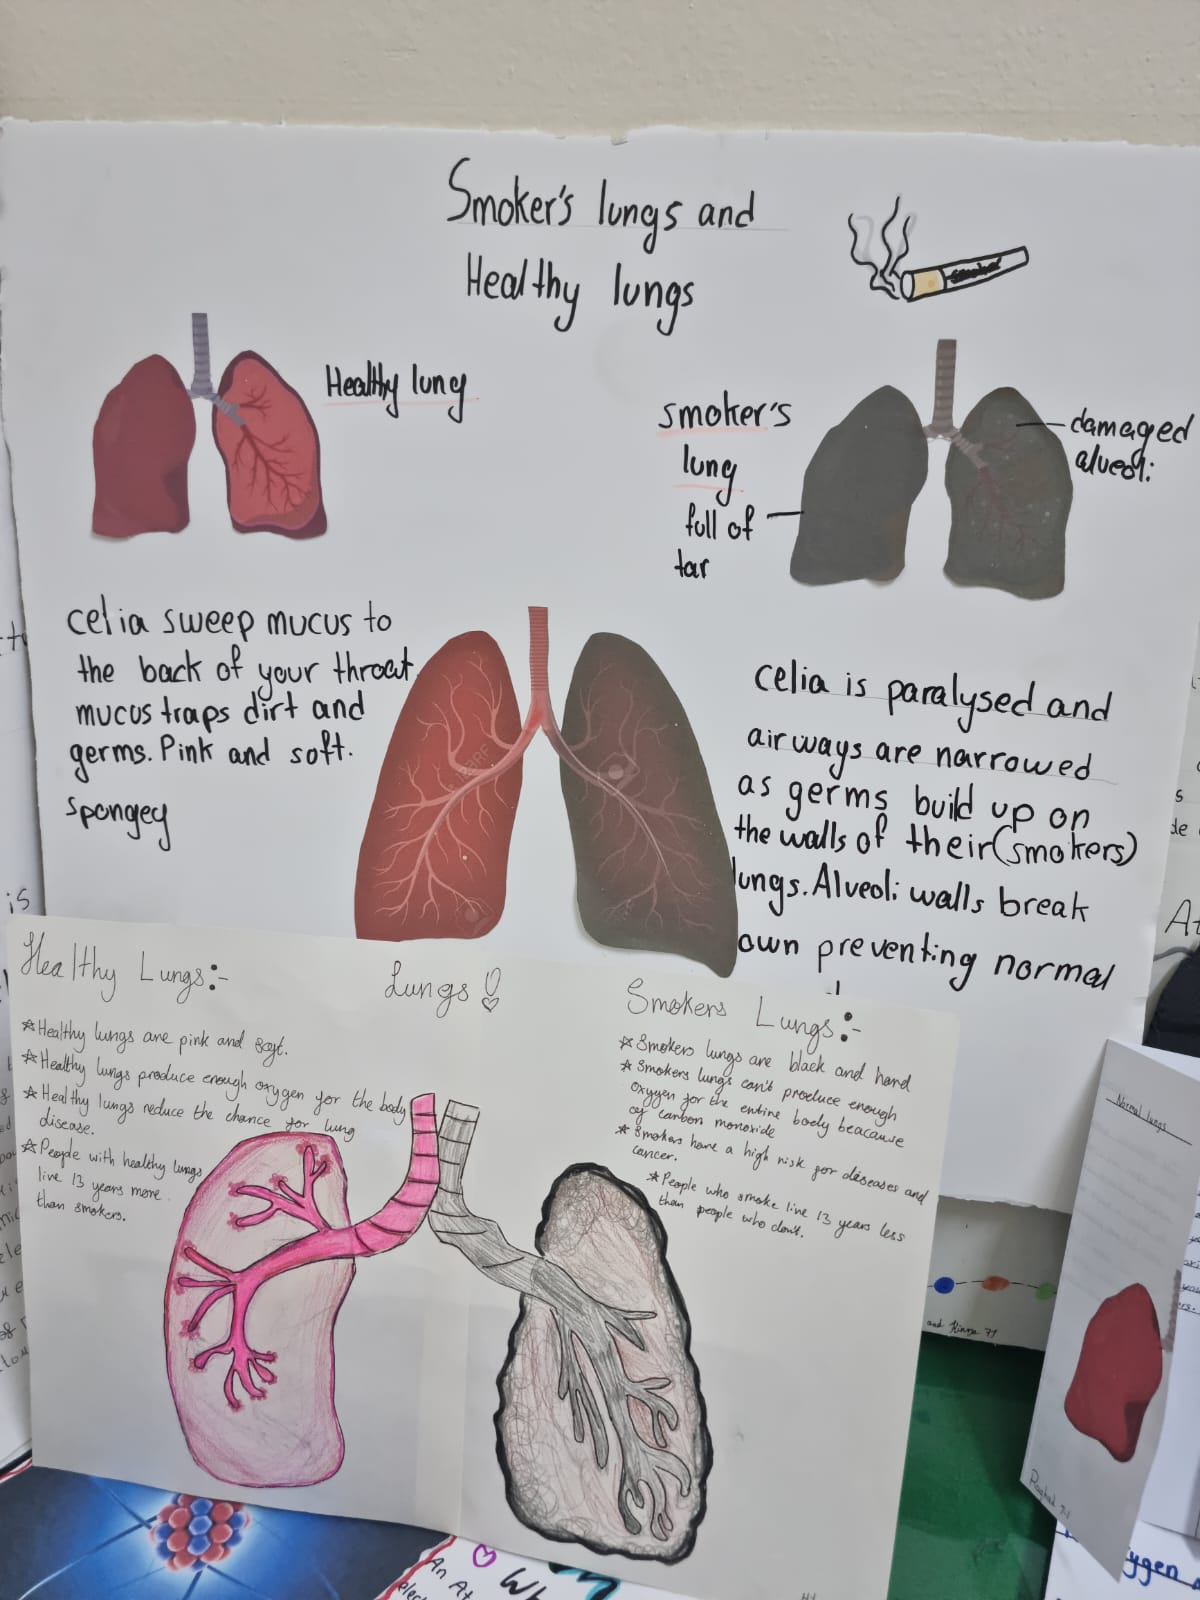 Smoker's lungs and
Healthy lungs
Healthy lung
smoker's
lung
full of
tar
damaged
alveoli
celia sweep mucus to
the back of your throat
mucus traps dirt and
germs. Pink and soft.
spongey
celia is paralysed and
airways are narrowed
as germs build up on
the walls of their (smokers)
lungs. Alveoli walls break
own preventing normal
Healthy Lungs:-
☆Healthy lungs are pink and soft.
☆Healthy lungs produce enough oxygen for the body
☆Healthy lungs reduce the chance for lung
disease.
☆People with healthy lungs
live 13 years more
than smokers.
Lungs
Smokers Lungs:-
☆Smokers lungs are black and hard
☆Smokers lungs can't produce enough
oxygen for the entire body beacause
of carbon monoxide
☆Smokers have a high risk for diseases and
cancer.
☆People who smoke live 13 years less
than people who don't.
Normal lungs
and
An At
elec
Wh
ygen
is
At